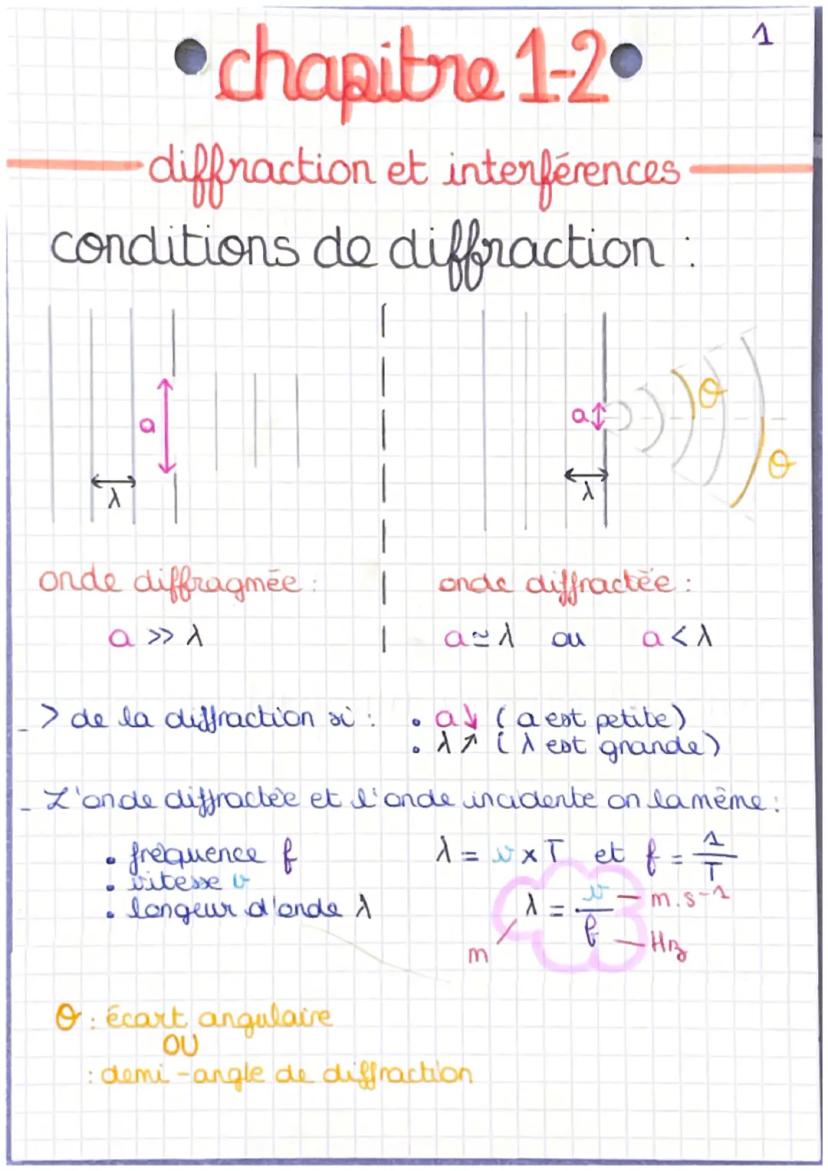 1
chapitre 1-2
diffraction et interférences
conditions de diffraction :
a
λ
a
λ
θ
θ
onde diffragmée :
a >> λ
onde diffractée :
a ≃ λ ou a < λ
_ > de la diffraction si : • a↓ (a est petite)
• λ↗ (λ est grande)
_ L'onde diffractée et l'onde incidente on la même :
• fréquence f
• vitesse v
• longeur d'onde λ
λ = v × T et f = 1/T
λ = v/f
m.s-1
m
Hz
θ : écart angulaire
OU
: demi-angle de diffraction